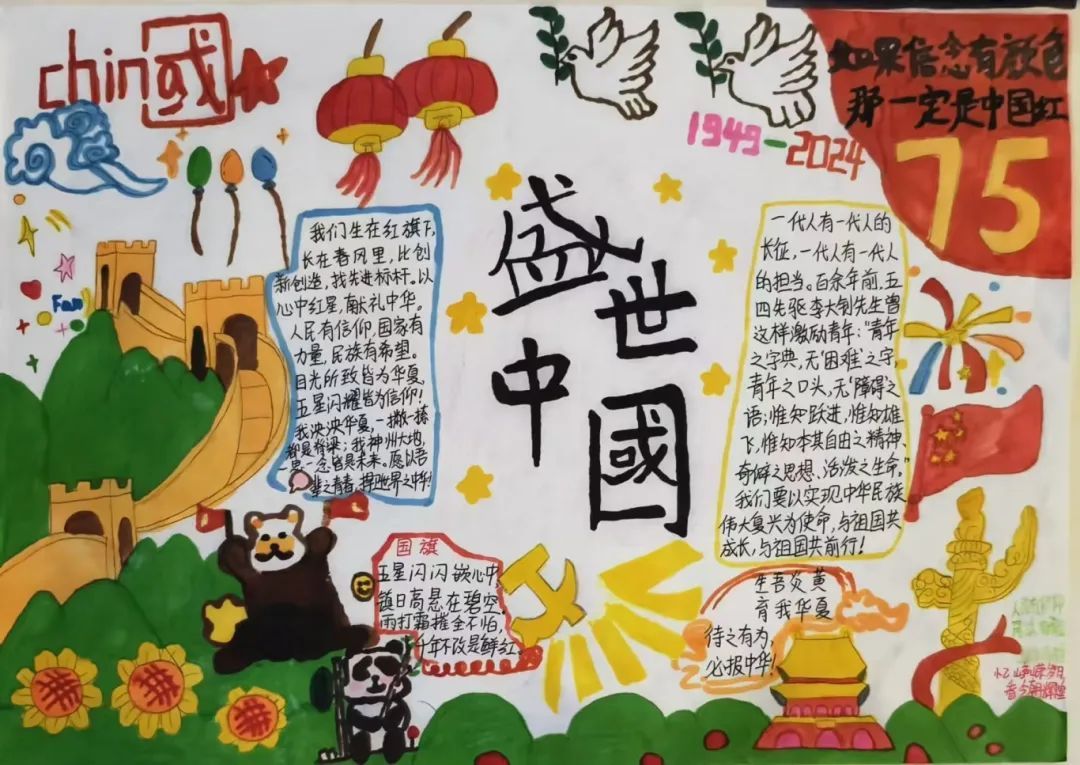 chin國
如果信念有颜色
那一定是中国红
75
1949-2024
盛世
中國
我们生在红旗下,
长在春风里,比创
新创造,找先进标杆。以
心中红星,献礼中华。
人民有信仰,国家有
力量,民族有希望。
目光所致皆为华夏,
五星闪耀皆为信仰!
我泱泱华夏,一撇一捺
都是脊梁;我神州大地,
一思一念皆具未来。愿以吾
辈之青春,捍卫世界之中华!
一代人有一代人的
长征,一代人有一代人
的担当。百余年前,五
四先驱李大钊先生曾
这样激励青年:“青年
之字典,无‘困难’之字,
青年之口头,无‘障碍’之
语;惟知跃进,惟知雄
飞,惟知本其自由之精神、
奇僻之思想、活泼之生命。”
我们要以实现中华民族
伟大复兴为使命,与祖国共
成长,与祖国共前行!
国旗
五星闪闪嵌心中,
镇日高悬在碧空。
雨打霜摧全不怕,
千年不改是鲜红。
生吾炎黄
育我华夏
待之有为,
必报中华!
忆峥嵘岁月,
看今朝辉煌